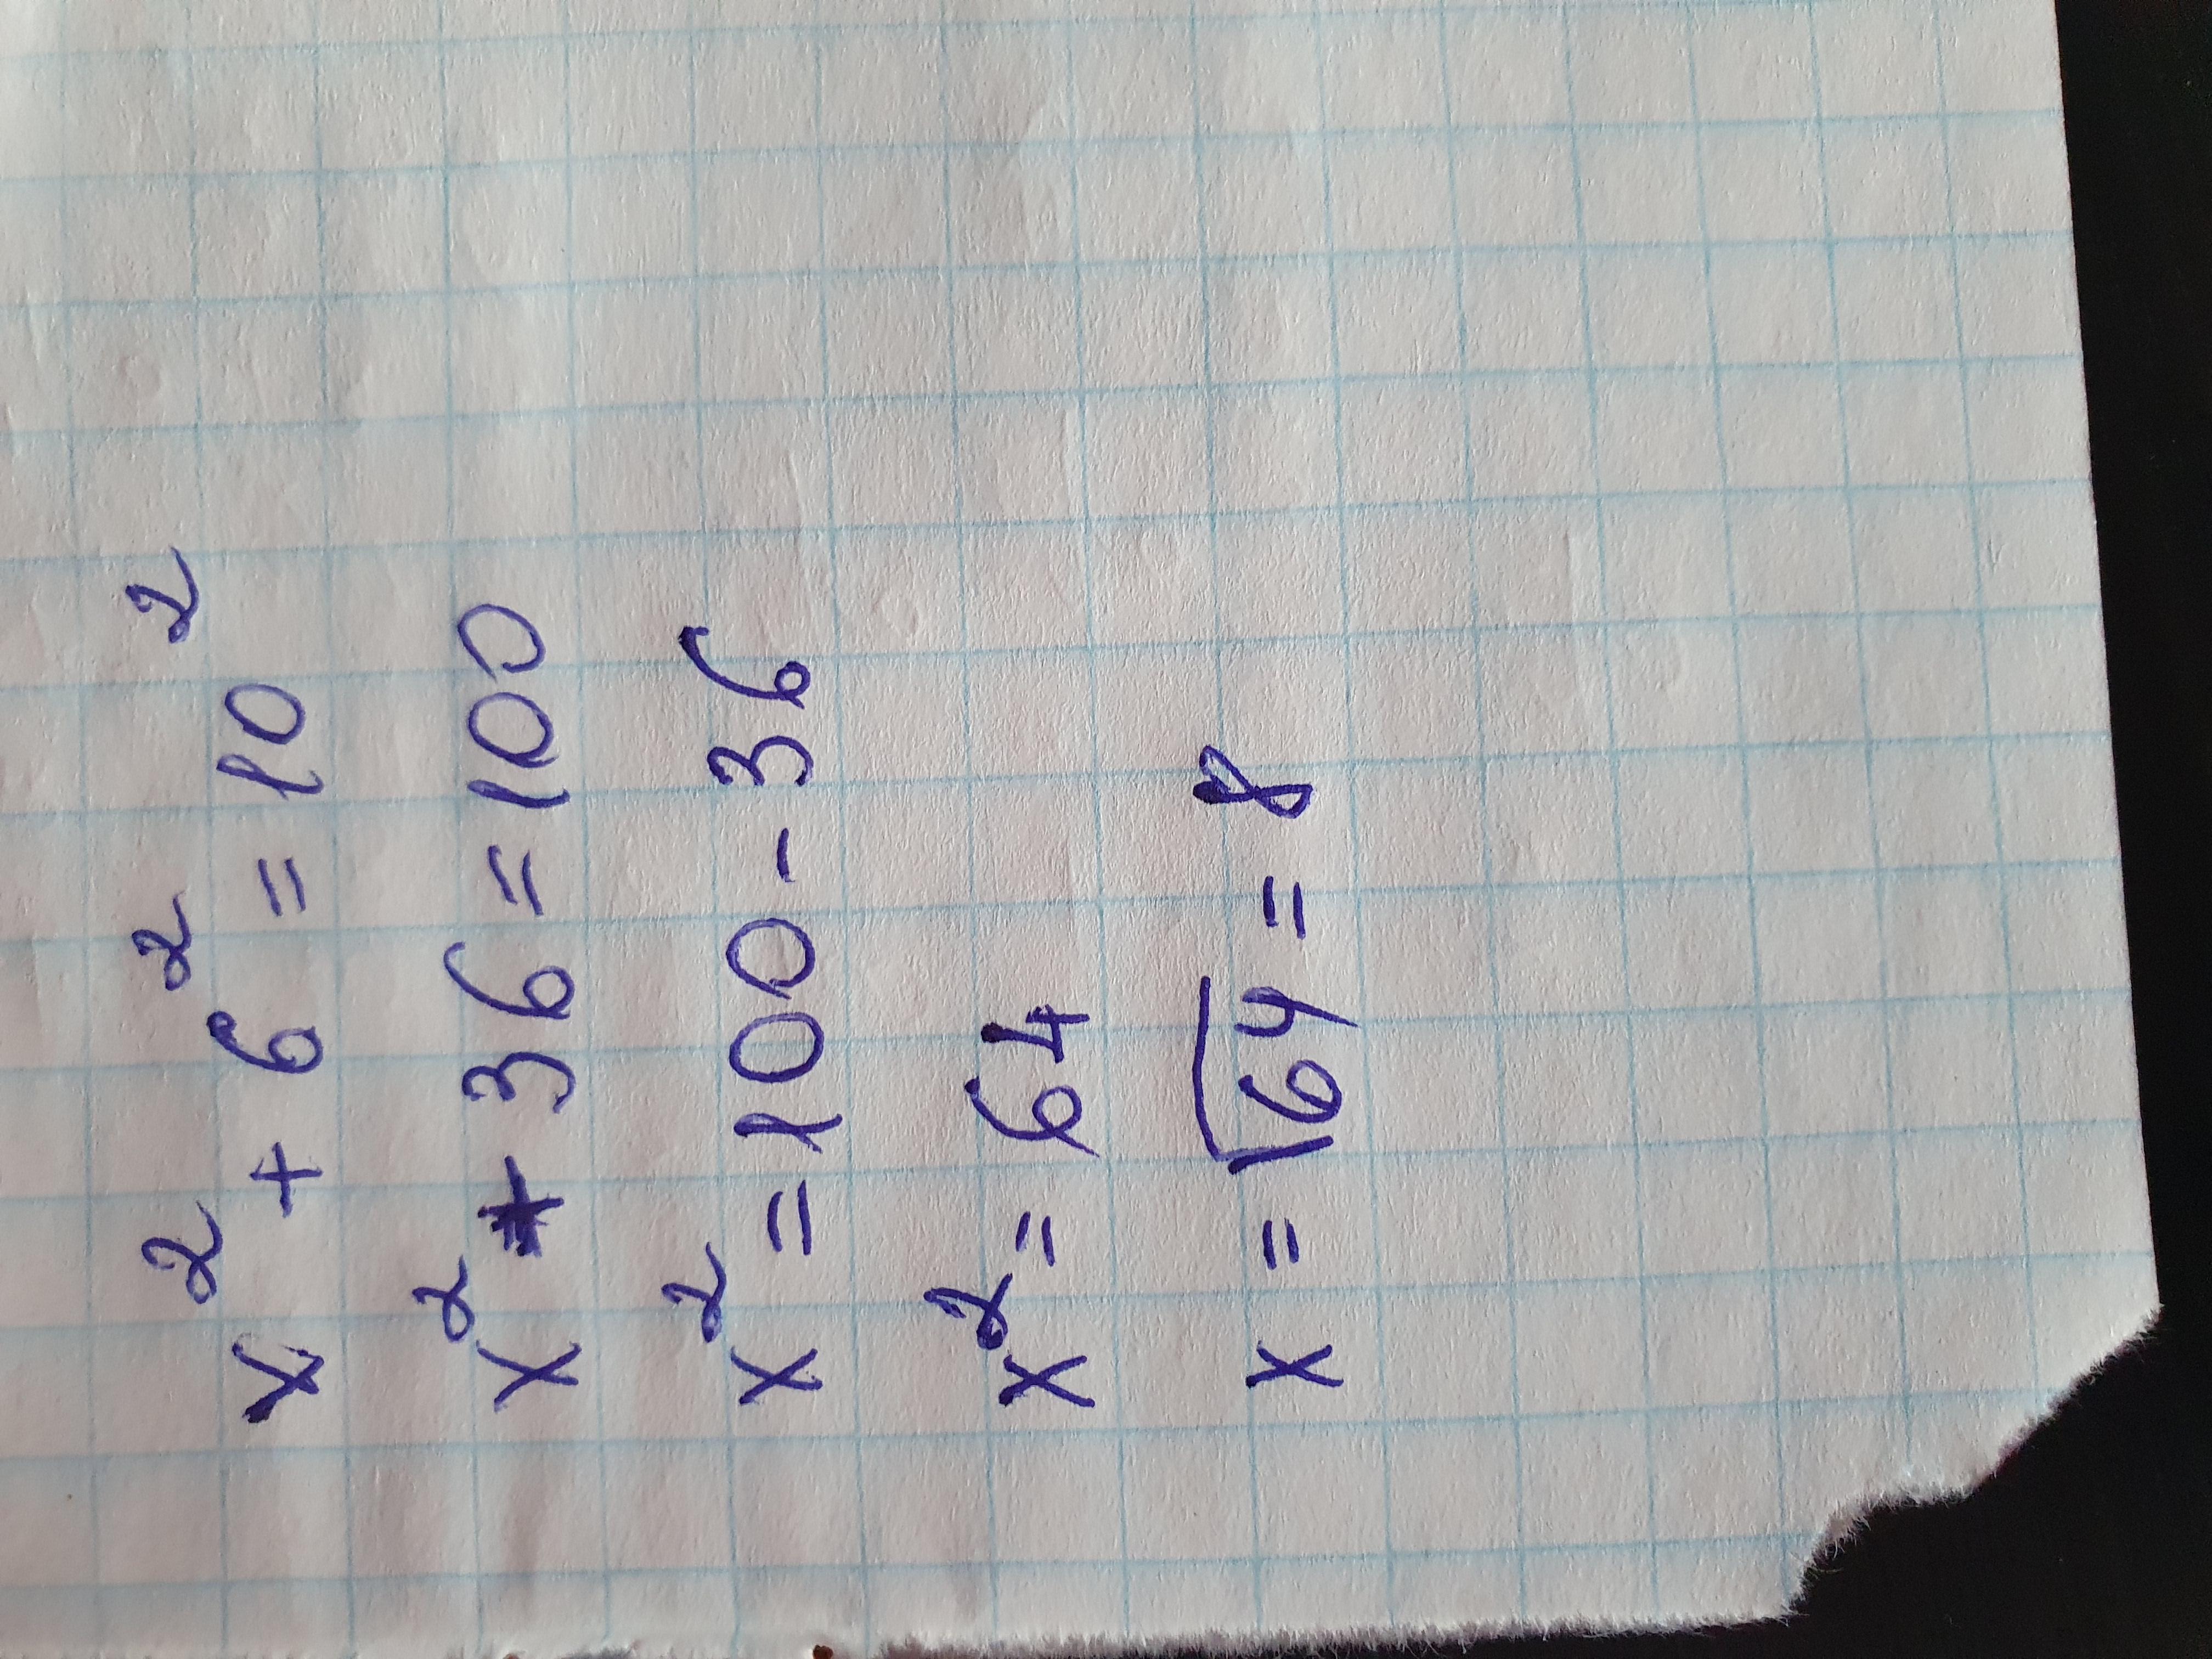 x² + 6² = 10²
x² + 36 = 100
x² = 100 - 36
x² = 64
x = √64 = 8